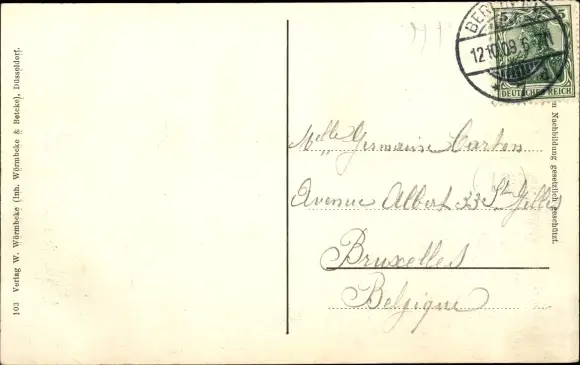 103 Verlag W. Wörmbeke (Inh. Wörmbeke & Beicke), Düsseldorf.
BERLIN
12.10.09. 6-7N
5
DEUTSCHES REICH
Nachbildung gesetzlich geschützt.
Melle Germaine Carton
Avenue Albert 33 St Gilles
Bruxelles
Belgique